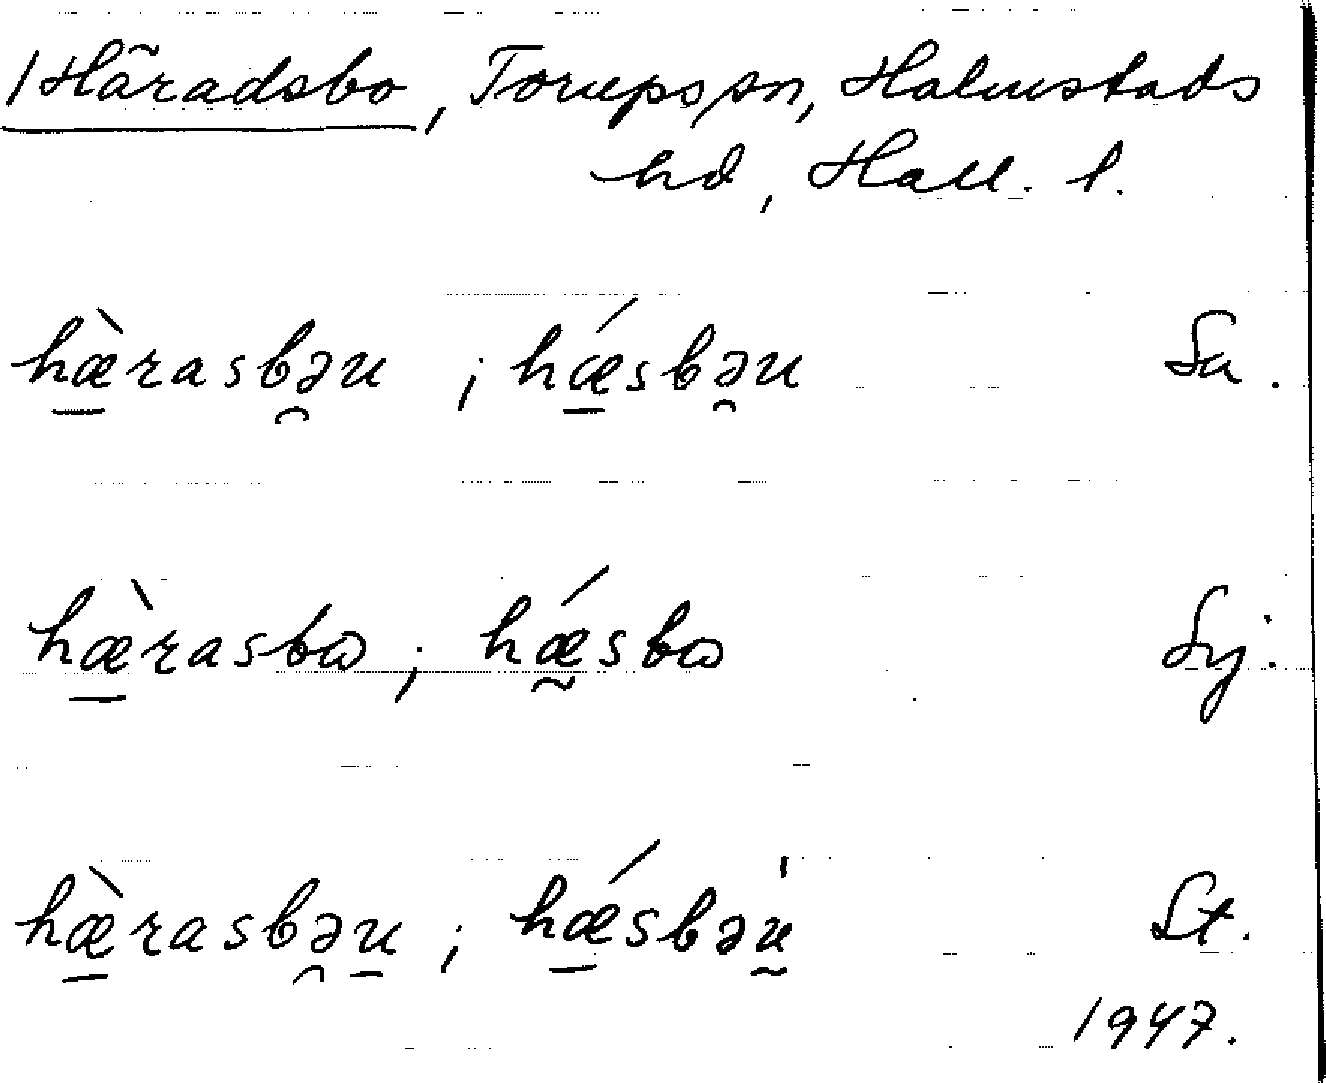 /Häradsbo, Torups sn, Halmstads
hd, Hall. l.
hæ̱̀rasbə̯u ; hǽ̱sbə̯u Sa.
hæ̱̀rasbɷ ; hǽ̰sbɷ Sj.
hæ̱̀rasbə̯u̱ ; hǽ̱sbəṵ̍ St.
1947.